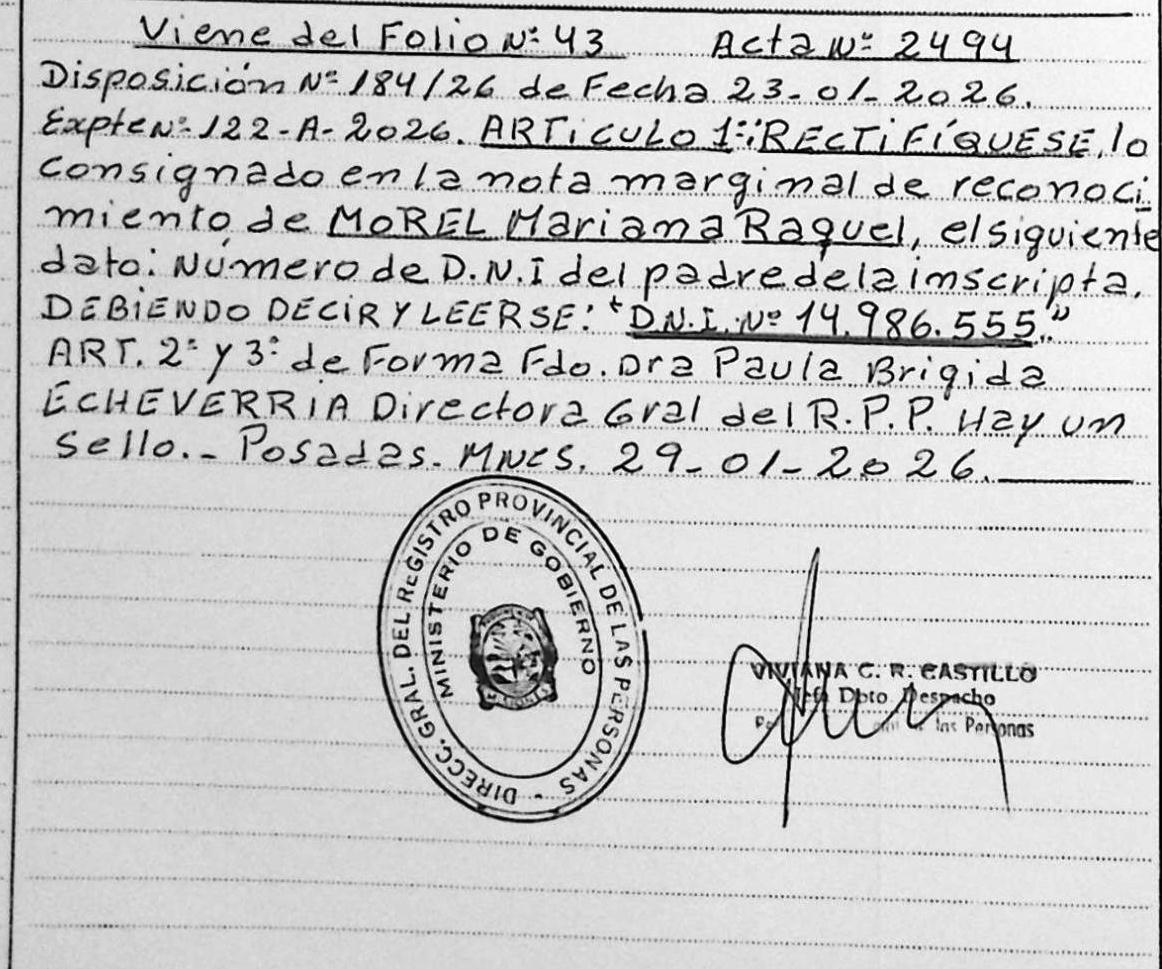 Viene del Folio Nº 43 Acta Nº 2494
Disposición Nº 184/26 de Fecha 23-01-2026.
Expte Nº 122-A-2026. ARTiCULO 1º: RECTiFÍQUESE, lo
consignado en la nota marginal de reconoci
miento de MOREL Mariana Raquel, el siguiente
dato: Número de D.N.I del padre de la inscripta.
DEBiENDO DECIR Y LEERSE: "D.N.I. Nº 14.986.555."
ART. 2º y 3º de Forma Fdo. Dra Paula Brigida
ECHEVERRiA Directora Gral del R.P.P. Hay un
sello.- Posadas. MNES. 29-01-2026.
DIRECC. GRAL. DEL REGISTRO PROVINCIAL DE LAS PERSONAS -
MINISTERIO DE GOBIERNO
VIVIANA C. R. CASTILLO
Jefa Dpto Despacho
de las Personas